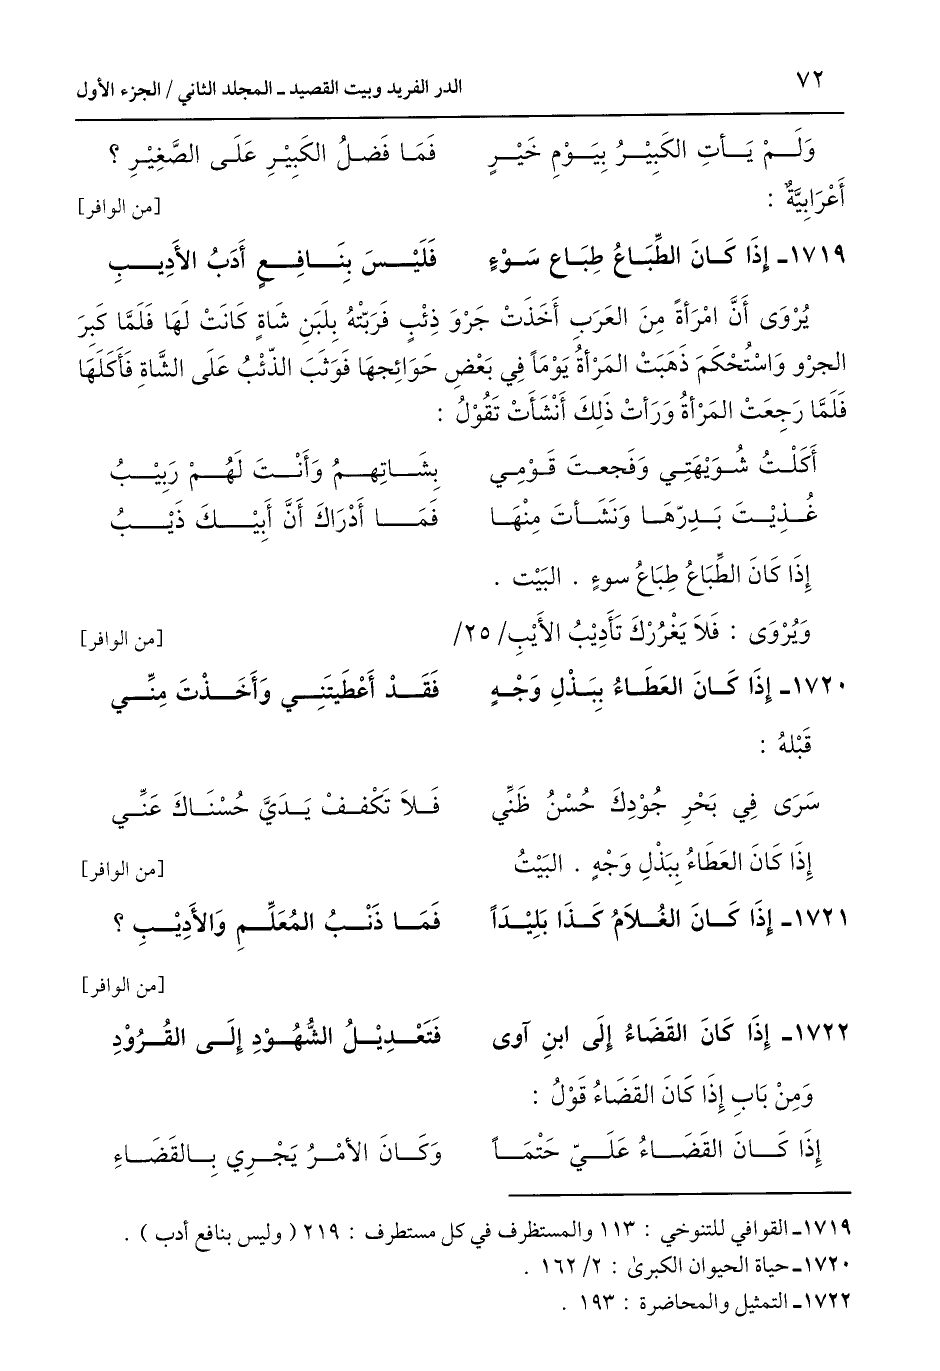 ٧٢ الدر الفريد وبيت القصيد ـ المجلد الثاني / الجزء الأول
وَلَـمْ يَـأتِ الكَبِيْـرُ بِيَـوْمِ خَيْـرٍ فَمَـا فَضـلُ الكَبِيْـرِ عَلَـى الصَّغِيْـرِ ؟
أَعْرَابِيَّةٌ : [من الوافر]
١٧١٩ـ إِذَا كَـانَ الطِّبَـاعُ طِبَـاعِ سَـوْءٍ فَلَيْـسَ بِنَـافِـعٍ أَدَبُ الأَدِيـبِ
يُرْوَى أَنَّ امْرَأةً مِنَ العَرَبِ أَخَذَتْ جَرْوَ ذِئْبٍ فَرَبّتْهُ بِلَبَنِ شَاةٍ كَانَتْ لَهَا فَلَمَّا كَبِرَ
الجرْو وَاسْتُحْكَمَ ذَهَبَتْ المَرْأةُ يَوْمَاً فِي بَعْضِ حَوَائِجِهَا فَوَثَبَ الذّئْبُ عَلَى الشَّاةِ فَأَكَلَهَا
فَلَمَّا رَجِعَتْ المَرْأةُ وَرَأتْ ذَلِكَ أَنْشَأَتْ تَقُوْلُ :
أَكَلْـتُ شُـوَيْهَتِـي وَفَجعـتَ قَـوْمِـي بِشَـاتِهِـمُ وَأَنْـتَ لَهُـمْ رَبِيْـبُ
غُـذِيْـتَ بَـدِرّهَـا وَنَشَـأتَ مِنْهَـا فَمَـا أَدْرَاكَ أَنَّ أَبِيْـكَ ذَيْـبُ
إِذَا كَانَ الطِّبَاعُ طِبَاعُ سوءٍ . البَيْت .
وَيُرْوَى : فَلاَ يَغْرُرْكَ تَأدِيْبُ الأَيْبِ/ ٢٥/ [من الوافر]
١٧٢٠ـ إِذَا كَـانَ العَطَـاءُ بِبَـذْلِ وَجْـهٍ فَقَـدْ أَعْطَيتَنِـي وَأَخَـذْتَ مِنِّـي
قَبْلهُ :
سَرَى فِي بَحْرِ جُوْدِكَ حُسْنُ ظَنِّي فَـلاَ تَكْفـفْ يَـدَيَّ حُسْنَـاكَ عَنِّـي
إِذَا كَانَ العَطَاءُ بِبَذْلِ وَجْهٍ . البَيْتُ [من الوافر]
١٧٢١ـ إِذَا كَـانَ الغُـلاَمُ كَـذَا بَلِيْـدَاً فَمَـا ذَنْـبُ المُعَلِّـمِ وَالأَدِيْـبِ ؟
[من الوافر]
١٧٢٢ـ إِذَا كَانَ القَضَاءُ إِلَى ابنِ آوى فَتَعْـدِيْـلُ الشُّهُـوْدِ إِلَـى القُـرُوْدِ
وَمِنْ بَابِ إِذَا كَانَ القَضَاءُ قَوْلُ :
إِذَا كَـانَ القَضَـاءُ عَلَـيّ حَتْمَـاً وَكَـانَ الأمْـرُ يَجْـرِي بِـالقَضَـاءِ
١٧١٩ـ القوافي للتنوخي : ١١٣ والمستظرف في كل مستطرف : ٢١٩ ( وليس بنافع أدب ) .
١٧٢٠ـ حياة الحيوان الكبرىٰ : ٢/ ١٦٢ .
١٧٢٢ـ التمثيل والمحاضرة : ١٩٣ .